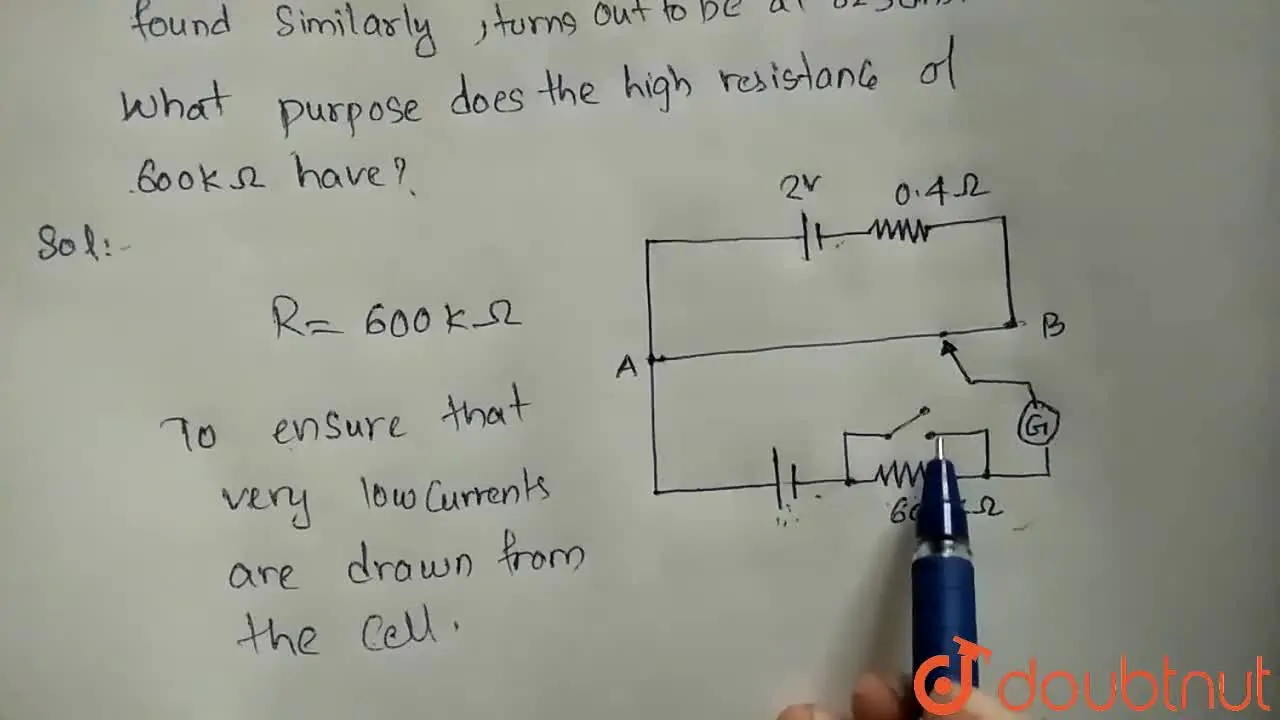 found Similarly, turns out to be at
What purpose does the high resistance of
600kΩ have?
Sol:-
2V
0.4Ω
R = 600kΩ
A
B
To ensure that
very low currents
are drawn from
the cell.
G
Ω
doubtnut